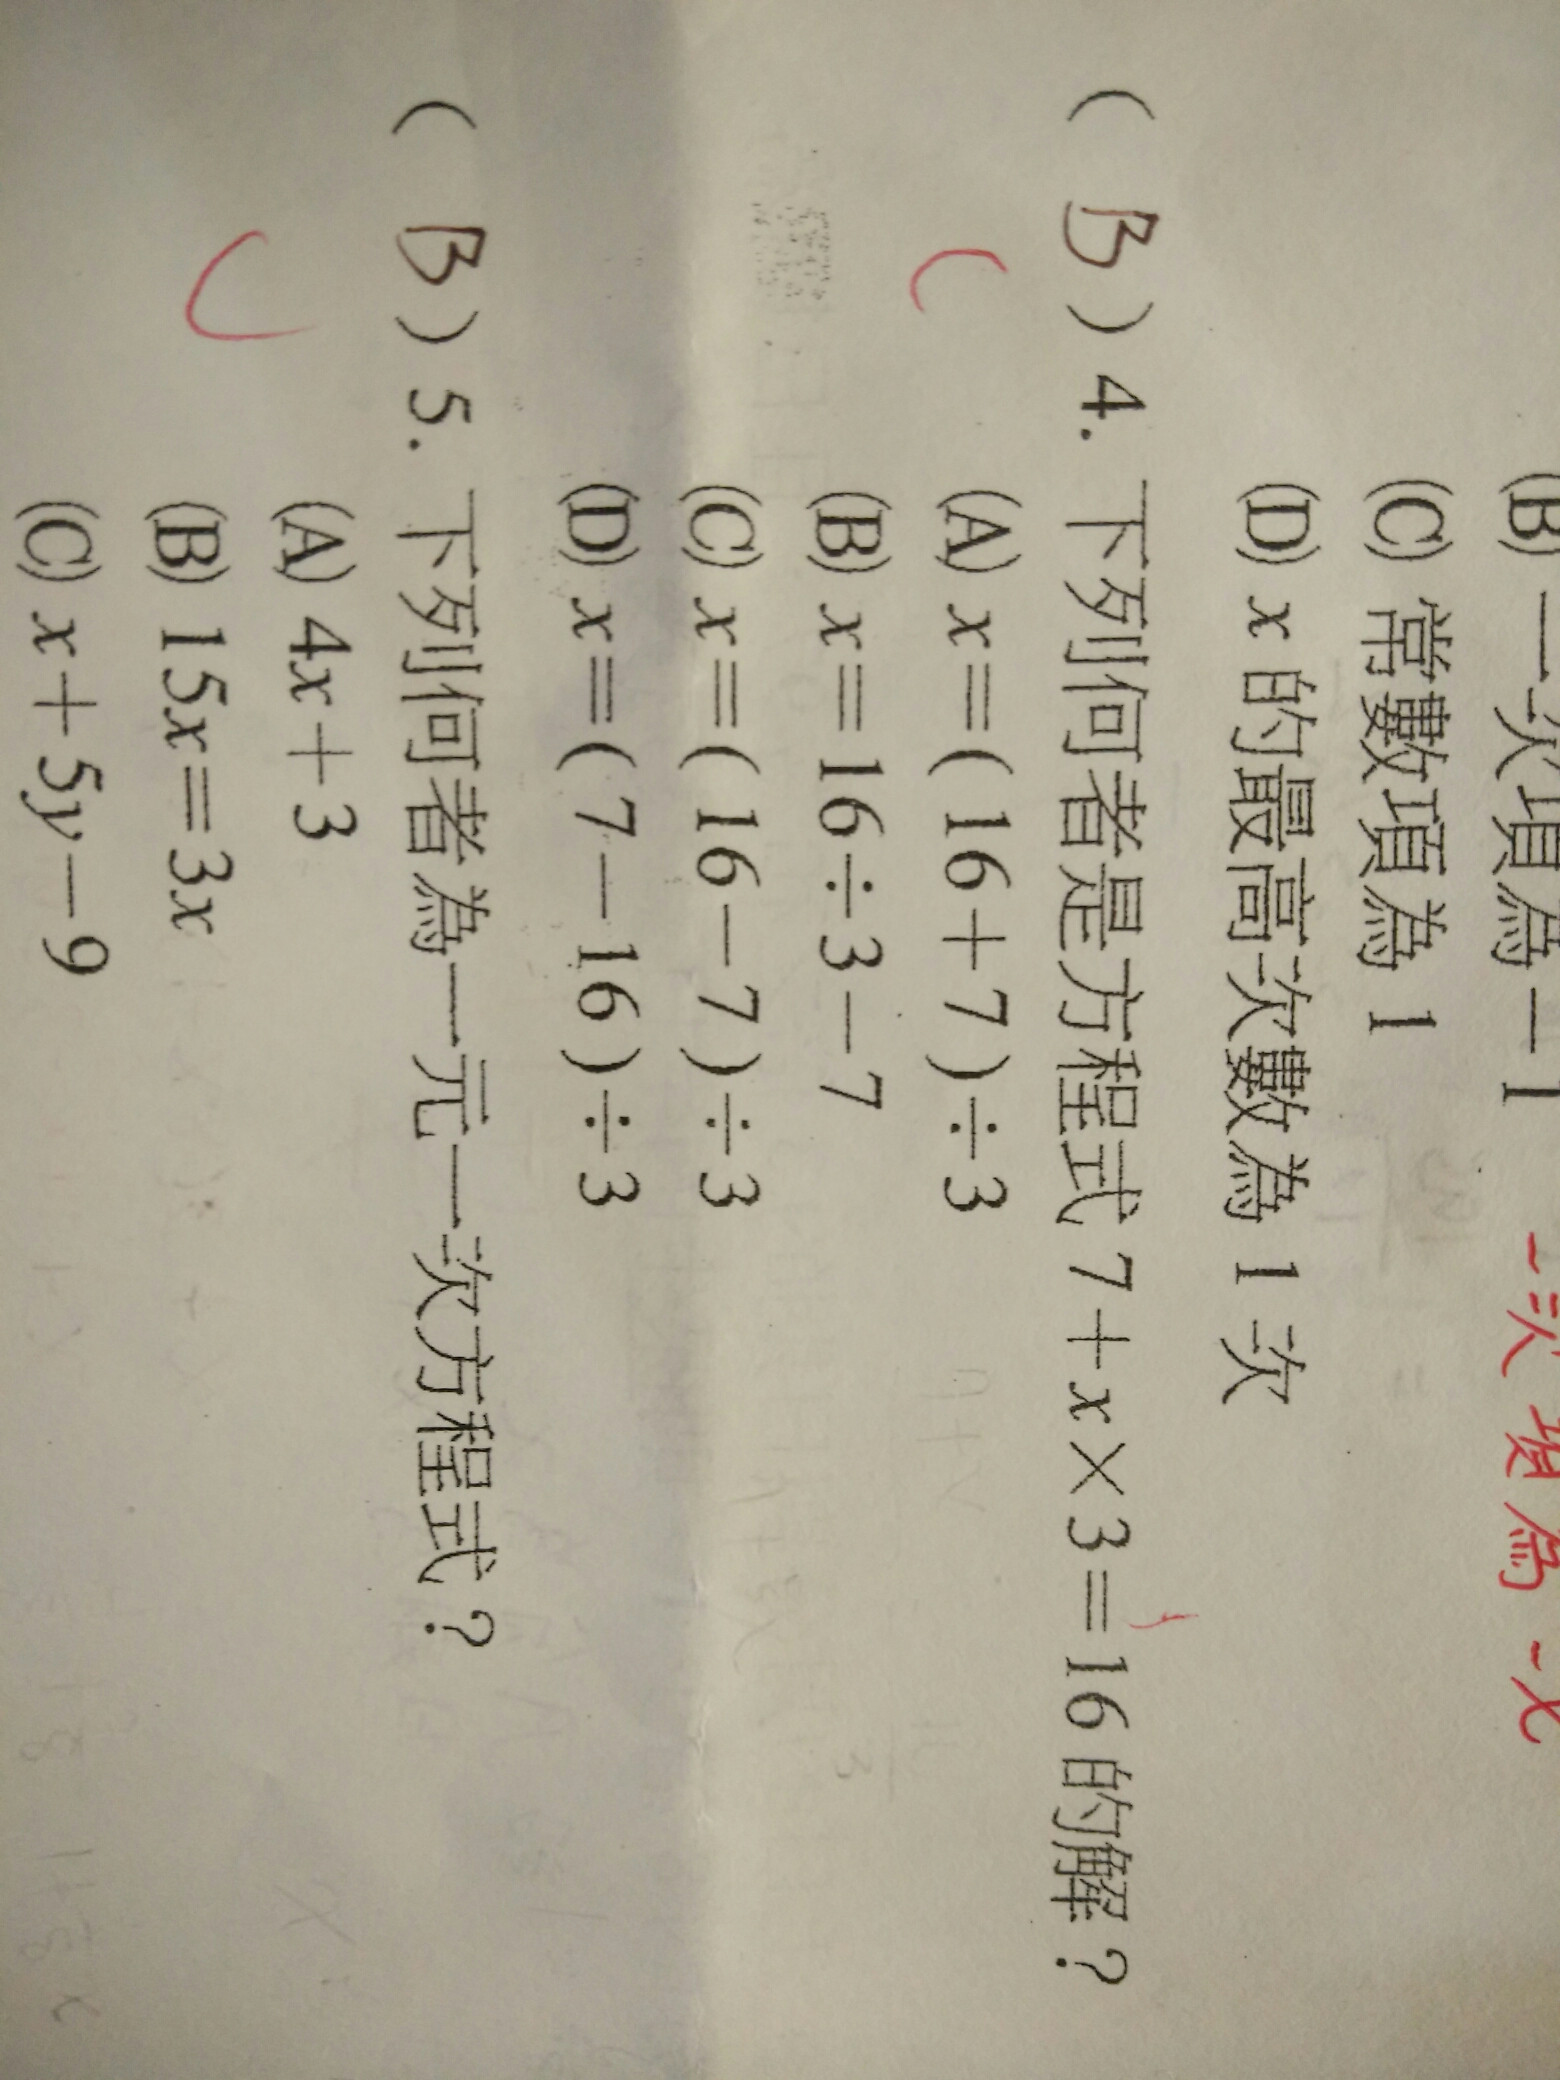 (B) 一次項為－1 一次項為 -x
(C) 常數項為 1
(D) x 的最高次數為 1 次
( B ) 4. 下列何者是方程式 7＋x×3＝16 的解？
(A) x＝( 16＋7 )÷3
(B) x＝16÷3－7
(C) x＝( 16－7 )÷3
(D) x＝( 7－16 )÷3
( B ) 5. 下列何者為一元一次方程式？
(A) 4x＋3
(B) 15x＝3x
(C) x＋5y－9